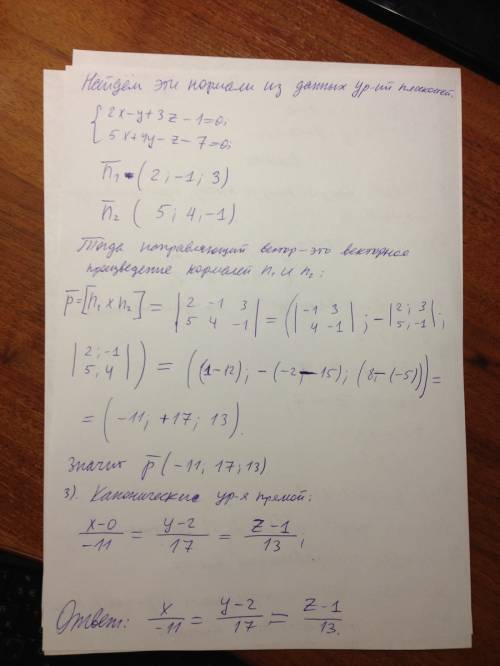 Найдём эти нормали из данных ур-ий плоскостей.
{2x-y+3z-1=0;
5x+4y-z-7=0;
n̄₁ (2; -1; 3)
n̄₂ (5; 4; -1)
Тогда направляющий вектор-это векторное
произведение нормалей n₁ и n₂:
p̄=[n̄₁ x n̄₂] = |2 -1 3| = (|-1 3| ; -|2; 3| ;
|5 4 -1| |4 -1| |5, -1|
|2; -1|) = ((1-12); -(-2-15); (8-(-5))) =
|5, 4|
= (-11; +17; 13).
Значит p̄ (-11; 17; 13)
3). Канонические ур-я прямой:
x-0/-11 = y-2/17 = z-1/13;
Ответ: x/-11 = y-2/17 = z-1/13.